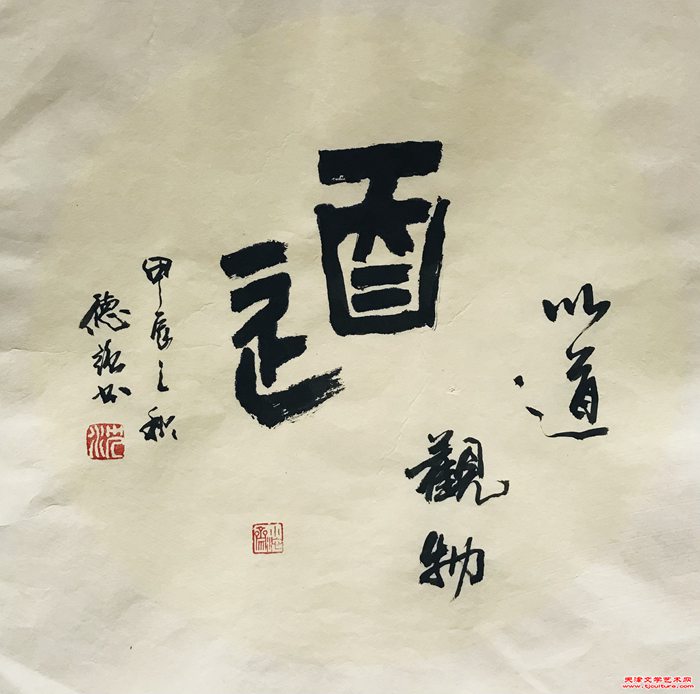 以道
觀物
道
甲辰之秋
德
天津文学艺术网
www.tjculture.com